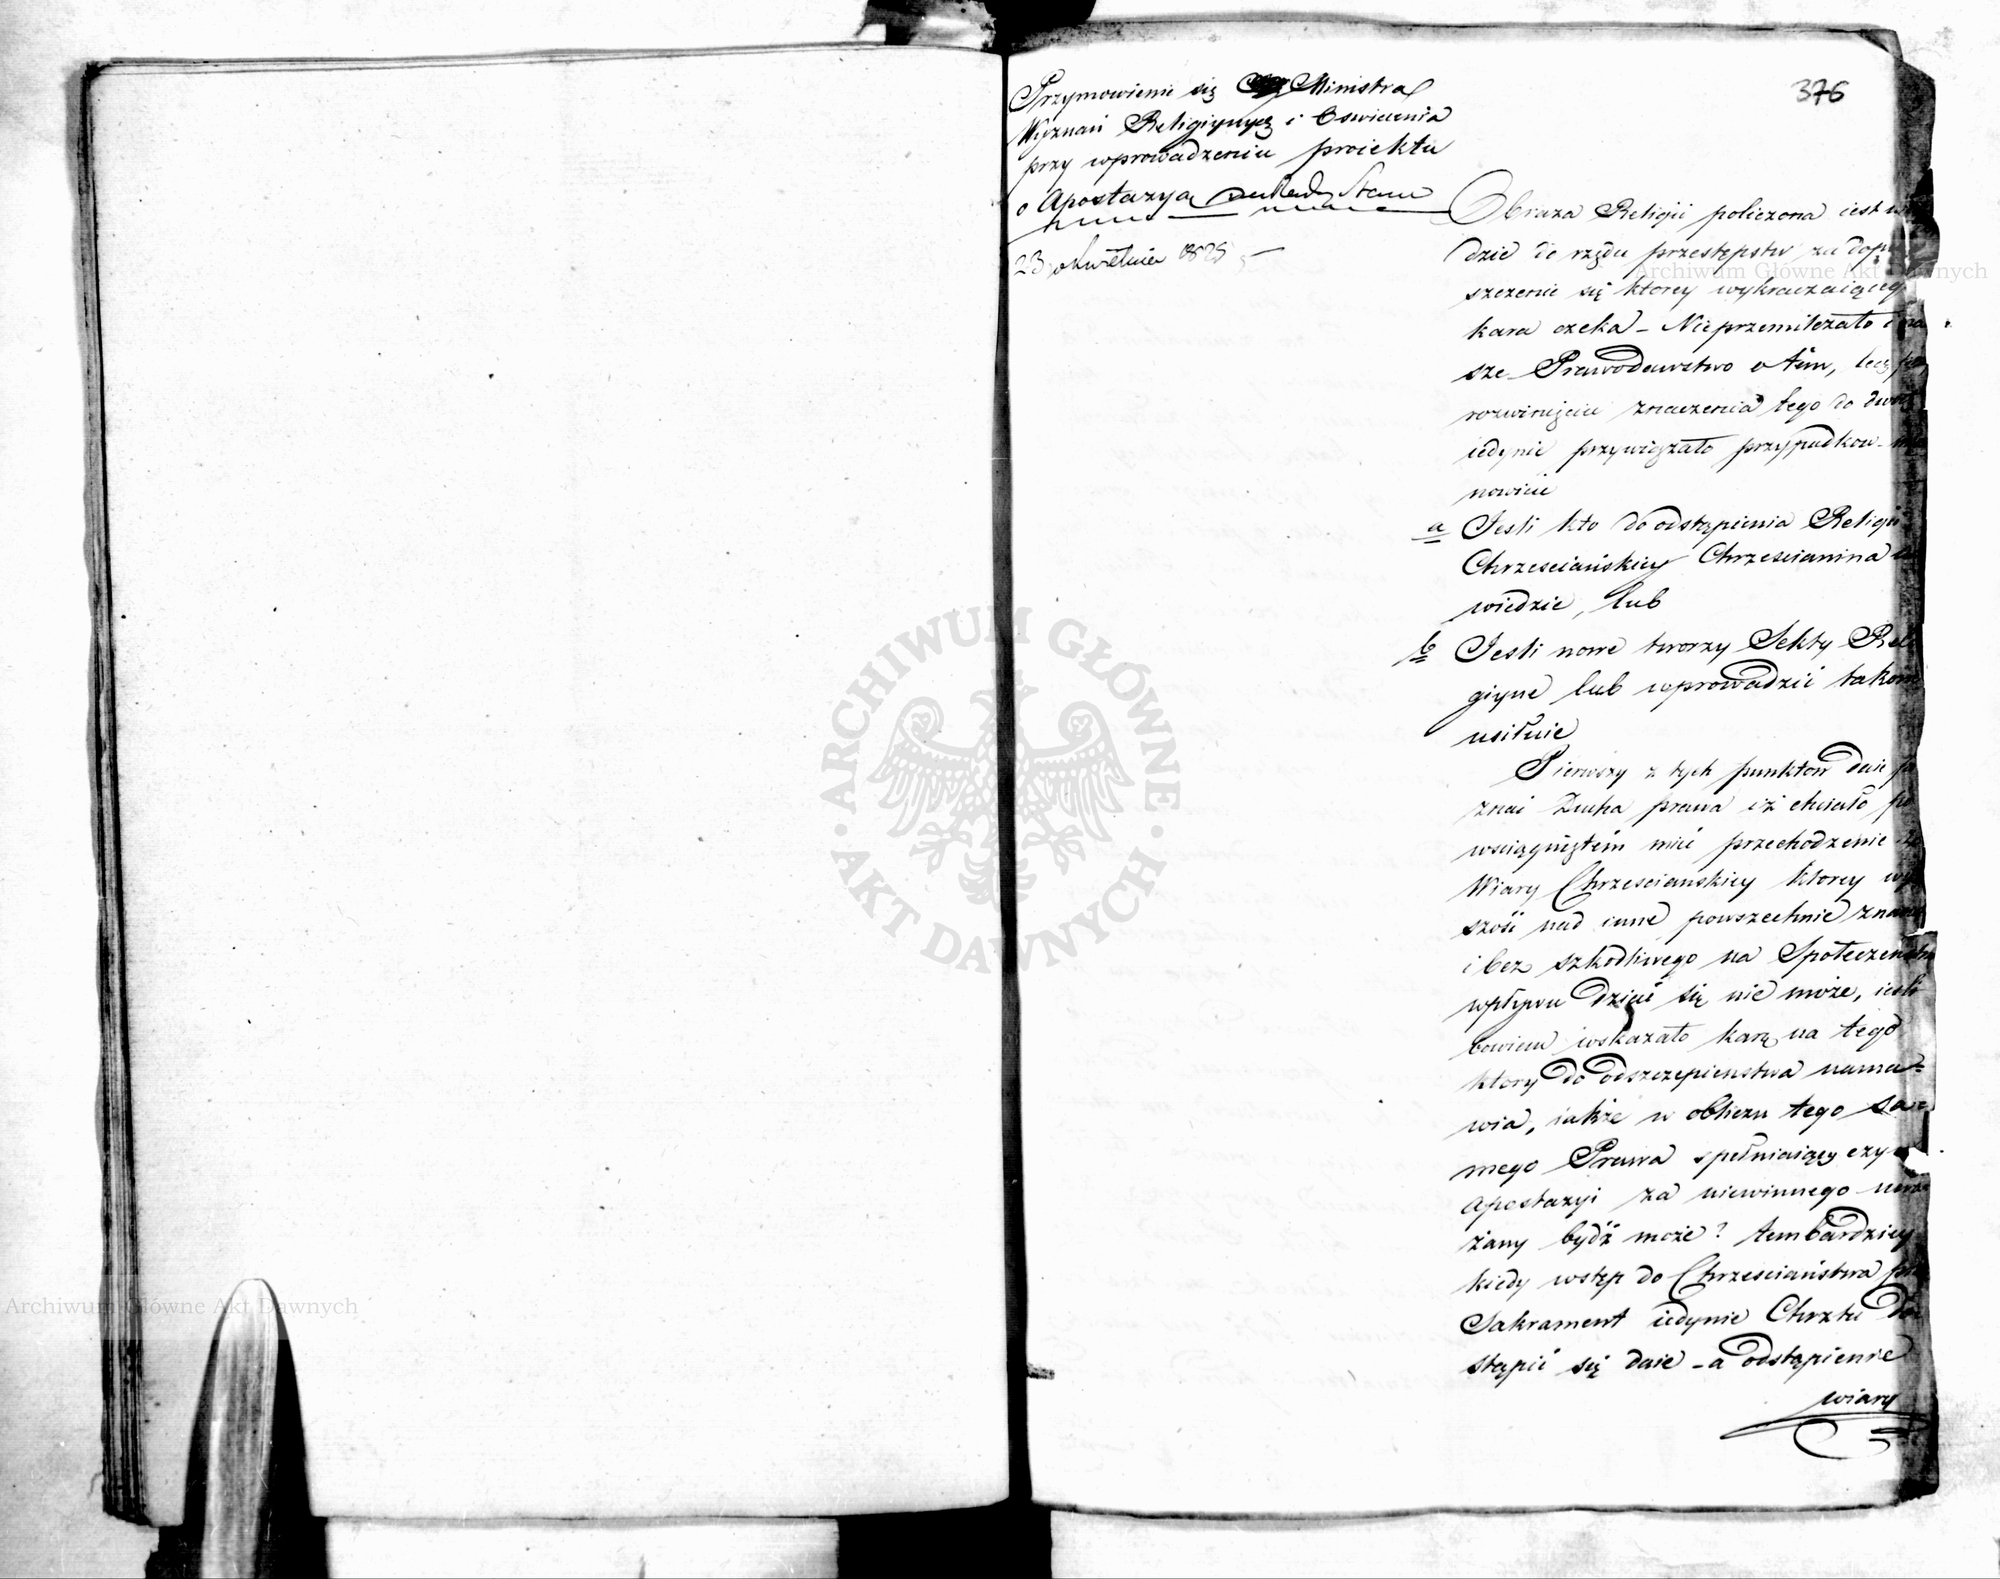 376
Przymowienie się Ministra
Wyznań Religiynych i Oswiecenia
przy wprowadzeniu proiektu
o Apostazyą Stanu
23 Kwietnia 1825
Obraza Religii policzona iest w
dzie do rzędu przestępstw, za dopu
szczenie się ktorey wykraczaiącego
kara czeka – Nieprzemilczało i na
sze Prawodawstwo o tém, lecz po
rozwinięciu znaczenia tego do dwóch
iedynie przywiązało przypadkow – mia
nowicie
a Jesli kto do odstąpienia Religii
Chrzesciańskiey Chrzescianina u
wiedzie, lub
b Jesli nowe tworzy Sekty Reli
giyne lub wprowadzić takowe
usiłuie
Pierwszy z tych punktow daie po
znać Ducha prawa iż chciało po
wsciągniętém mieć przechodzenie z
Wiary Chrzescianskiey ktorey wyż
szość nad inne powszechnie znana
i bez szkodliwego na Społeczeństwo
wpływu dziać się nie może, iesli
bowiem wskazało karę na tego
ktory do odszczepienstwa nama=
wia, iakże w obliczu tego sa=
mego Prawa spełniaiący czyn
Apostazyi za niewinnego uwa
żany bydź może? tembardziey
kiedy wstęp do Chrzesciaństwa przez
Sakrament iedynie Chrztu do
stąpić się daie – a odstąpienie
wiary
ARCHIWUM GŁÓWNE AKT DAWNYCH
Archiwum Główne Akt Dawnych
Archiwum Główne Akt Dawnych